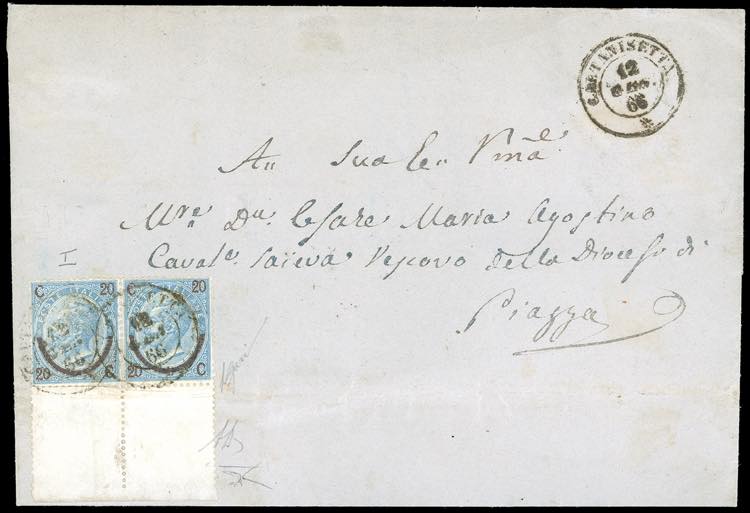 CALTANISETTA
12
66
A.. Sua Ec.. Rma
Mre. Dn. Cesare Maria Agostino
Cavale. Saieva Vescovo della Diocesi di
Piazza
I
C 20 C 20
12
66
20 C 20 C